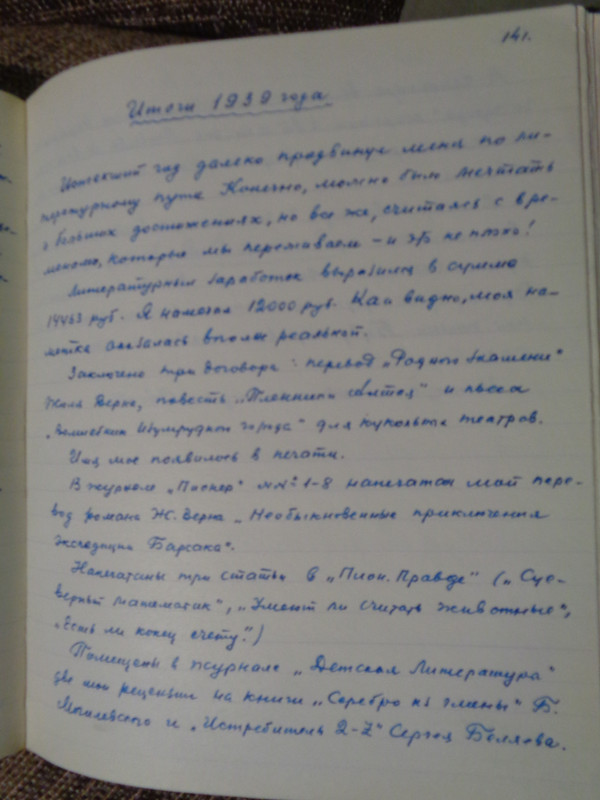 141.
Итоги 1939 года
Истекший год далеко продвинул меня по ли-
тературному пути. Конечно, можно было мечтать
о больших достижениях, но все же, считаясь с вре-
менем, которое мы переживаем – и это не плохо!
Литературный заработок выразился в сумме
14463 руб. Я наметил 12000 руб. Как видно, моя на-
метка оказалась вполне реальной.
Заключено три договора: перевод „Родного знамени"
Жюль Верна, повесть „Пленники" и пьеса
„Волшебник Изумрудного города" для кукольных театров.
Имя мое появилось в печати.
В журнале „Пионер" №№ 1-8 напечатан мой пере-
вод романа Ж. Верна „Необыкновенные приключения
экспедиции Барсака".
Напечатаны три статьи в „Пион. Правде" („Суе-
верный математик", „Умеют ли считать животные",
„Есть ли конец счету?")
Помещены в журнале „Детская Литература"
две мои рецензии на книги „Серебро из глины" Б.
Могилевского и „Истребитель 2-Z" Сергея Беляева.